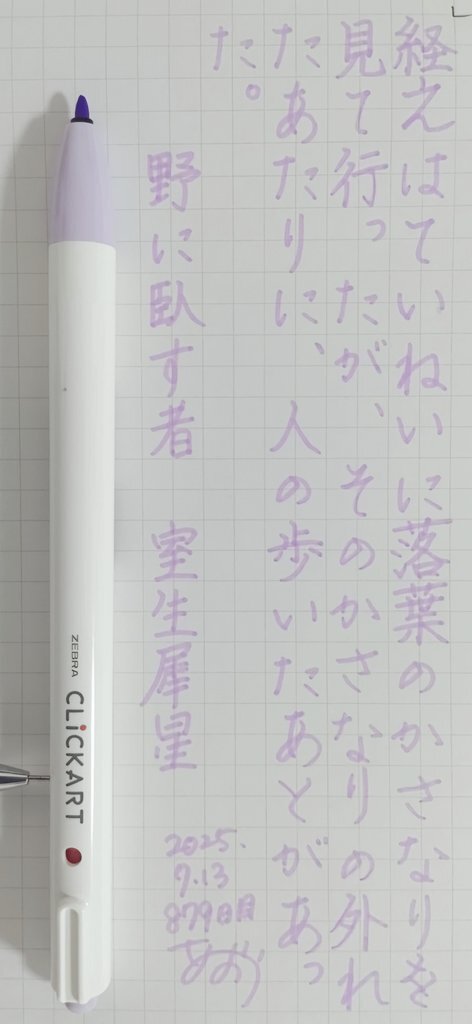 経えはていねいに落葉のかさなりを
見て行ったが、そのかさなりの外れ
たあたりに、人の歩いたあとがあっ
た。
野に臥す者 室生犀星
2025.
9.13
879日目
あお
ZEBRA CLiCKART